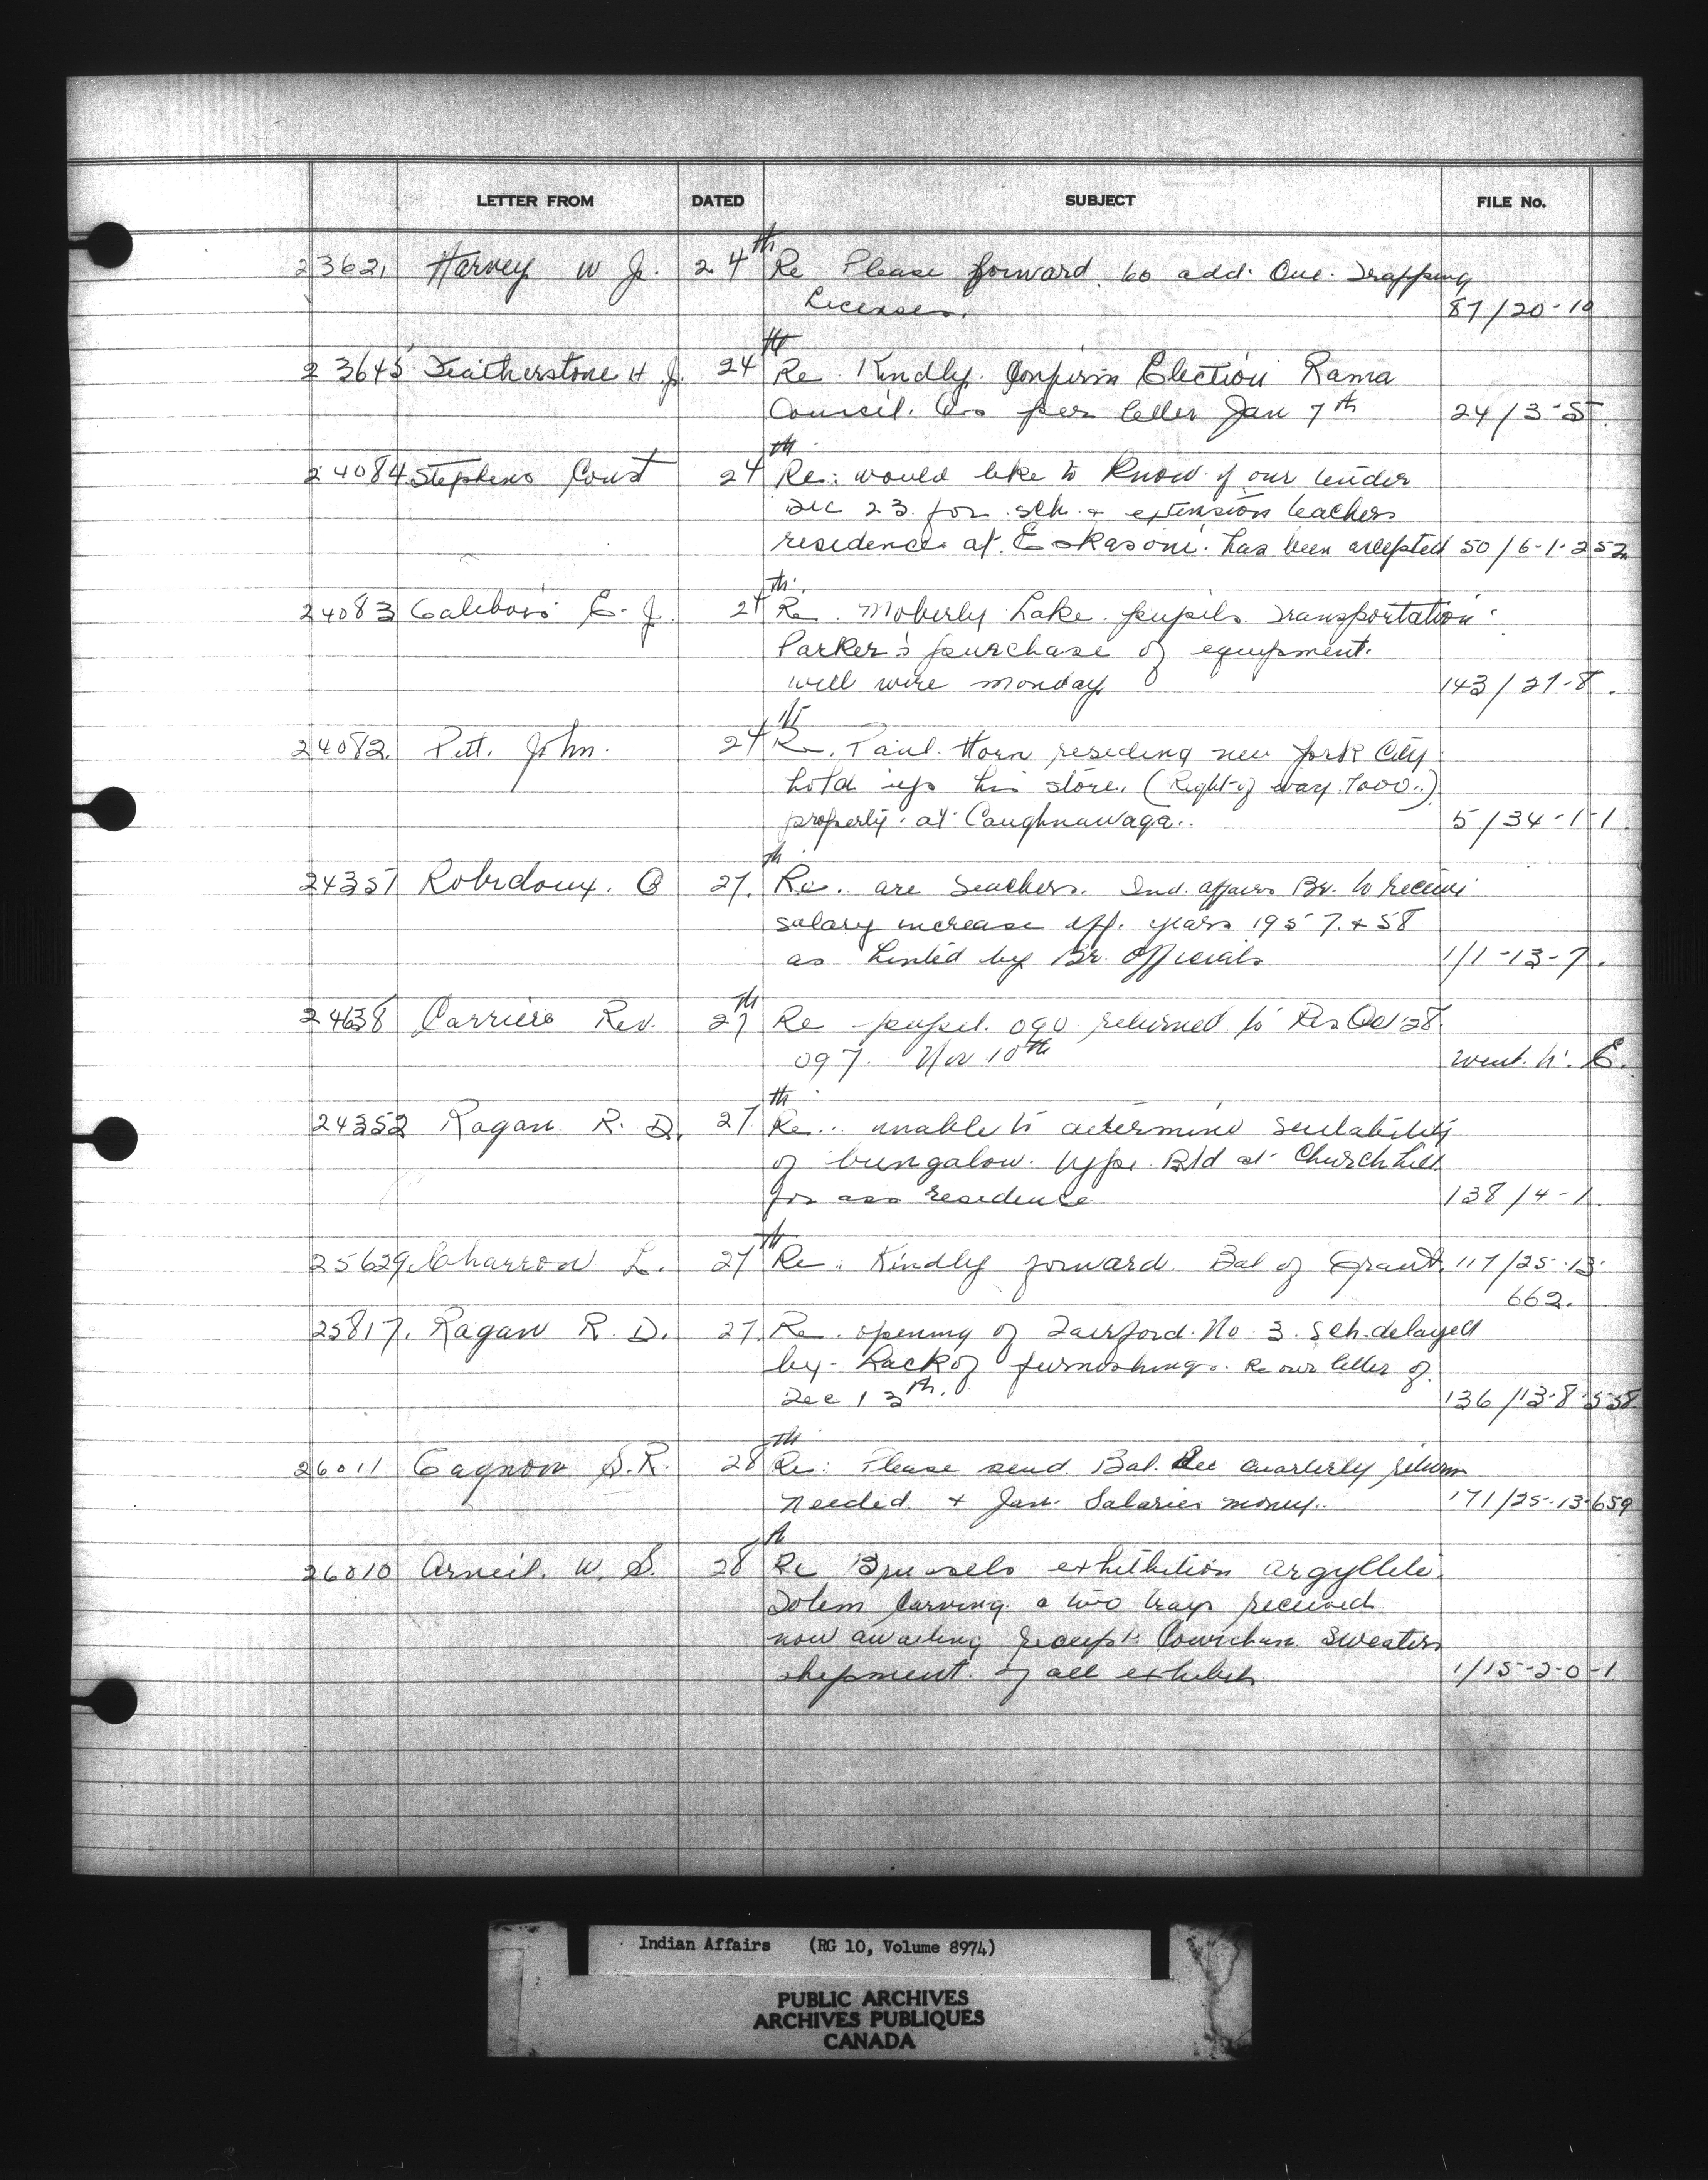 LETTER FROM DATED SUBJECT FILE No.
23621 Harvey W J. 24th Re Please forward 60 add. Que. Trapping
Licenses. 87/20-10
23645 Featherstone H J. 24th Re Kindly Confirm Election Rama
Council. As per letter Jan 7th 24/3-5.
24084 Stephens Const 24th Re: would like to know if our tender
Dec 23 for sch. + extension teachers
residence at Eskasoni. has been accepted 50/6-1-252
24083 Galibois E. J. 24th Re. Moberly Lake pupils Transportation
Parker's purchase of equipment.
will wire Monday 143/27-8.
24082. Pitt. John. 24th Re. Paul Horn residing new York City
hold up his store. (Right of way 7000..)
property. at Caughnawaga.. 5/34-1-1.
24351 Robidoux. O 27th Re. are Teachers. Ind. affairs Br. to receive
salary increase eff. years 1957. + 58
as hinted by Br. Officials 1/1-13-7.
24638 Carriere Rev. 27th Re pupil. 090 returned to Res Oct 28.
097. Nov 10th went to. E.
24352 Ragan R. D. 27th Re.. unable to determine suitability
of bungalow. type Bld at Churchill
for ass residence 138/4-1.
25629. Charron L. 27th Re: Kindly forward Bal of Grant. 117/25-13-
662.
25817. Ragan R. D. 27. Re. opening of Fairford. No. 3. Sch. delayed
by- Lack of furnishings. Re our letter of
Dec 13th. 136/13-8-558
26011 Gagnon S.R. 28th Re: Please send Bal. Dec Quarterly return
needed + Jan. Salaries money.. 171/25-13-659
26010 Arneil. W. S. 28th Re Brussels exhibition argyllite.
Totem Carving. & two trays received
now awaiting receipt Cowichan Sweaters
shipment of all exhibits 1/15-2-0-1
Indian Affairs (RG 10, Volume 8974)
PUBLIC ARCHIVES
ARCHIVES PUBLIQUES
CANADA